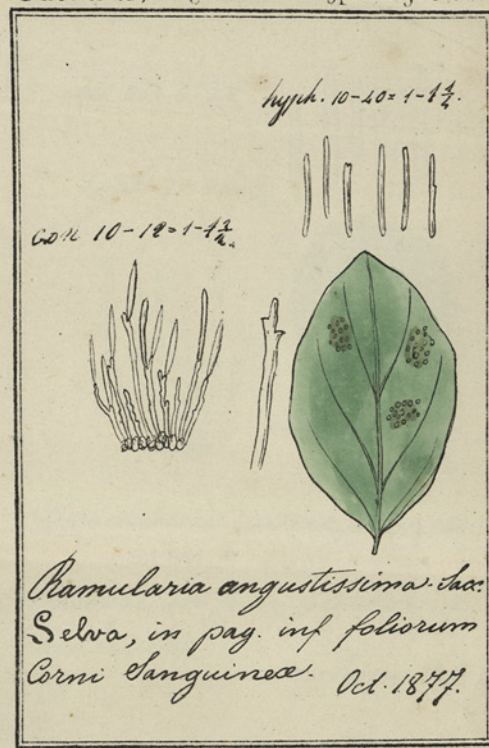 hyph. 10-40 = 1-1 1/4.
con 10-12 = 1-1 1/2.
Ramularia angustissima. Sacc.
Selva, in pag. inf foliorum
Corni Sanguineæ. Oct. 1877.